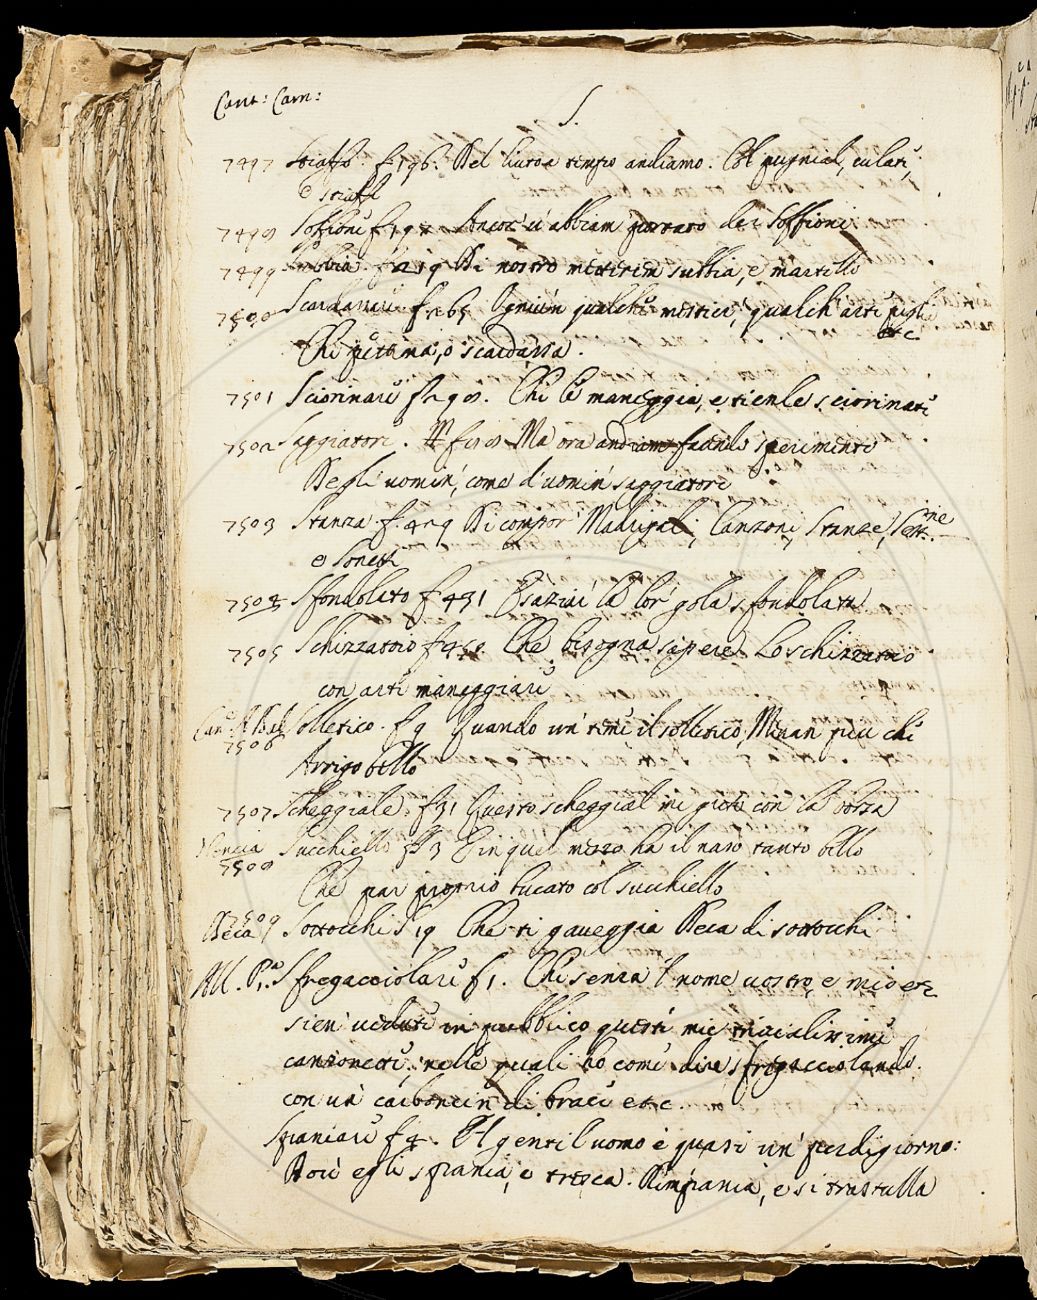 Cant: Carn:
S.
7497 Stiaffo. f. 196. Del livrea tempo andiamo. Col pugnial, culati,
e stiaffi
7498 Soffioni f. Ancor' ci abbiam portato dei Soffioni
7499 Subbia. f. 219 Di nostro mestier subbia, e martello
7500 Scardassare f. 265 Ognun qualche mestier, qualch' arte pigli
etc
Chi pettina, o scardassa.
7501 Sciorinare f. 298. Chi le maneggia, e tienle sciorinate
7502 Saggiatori. Ma ora andiam facendo sperimenti
Degli uomin', come d'uomin' saggiatori
7503 Stanza f. 429 Di compor' Madrigali, Canzoni, Stanze, Sestine
e Sonetti
7504 Sfondolato f. 431 E saziai la lor' gola sfondolata
7505 Schizzatoio f. 458. Che bisogna sapere Lo schizzatoio
con arte maneggiare
7506 Solletico. f. 9 Quando un' teme il solletico, Minan più chi
Arrigobello
7507 Scheggiale. f. 31 Questo scheggial mi guta con la borsa
Nencia
7508 Succhiello f. 3 E in quel mezzo ha il naso tanto bello
Che par proprio bucato col succhiello
Beca 7509 Sottocchi f. 19 Che ti gaveggia Beca di sottocchi
All. P.a Sfregacciolare f. 1. Chi senza 'l nome vostro, e mio etc
sien' vedute in pubblico queste mie trivialissime
canzonette, nelle quali vo come dire sfregacciolando
con un' carboncin' di brace etc.
Spaniare f. 4. Il gentiluomo è quasi un' perdigiorno:
Dove egli spania, e tresca. Rimpania, e si trastulla